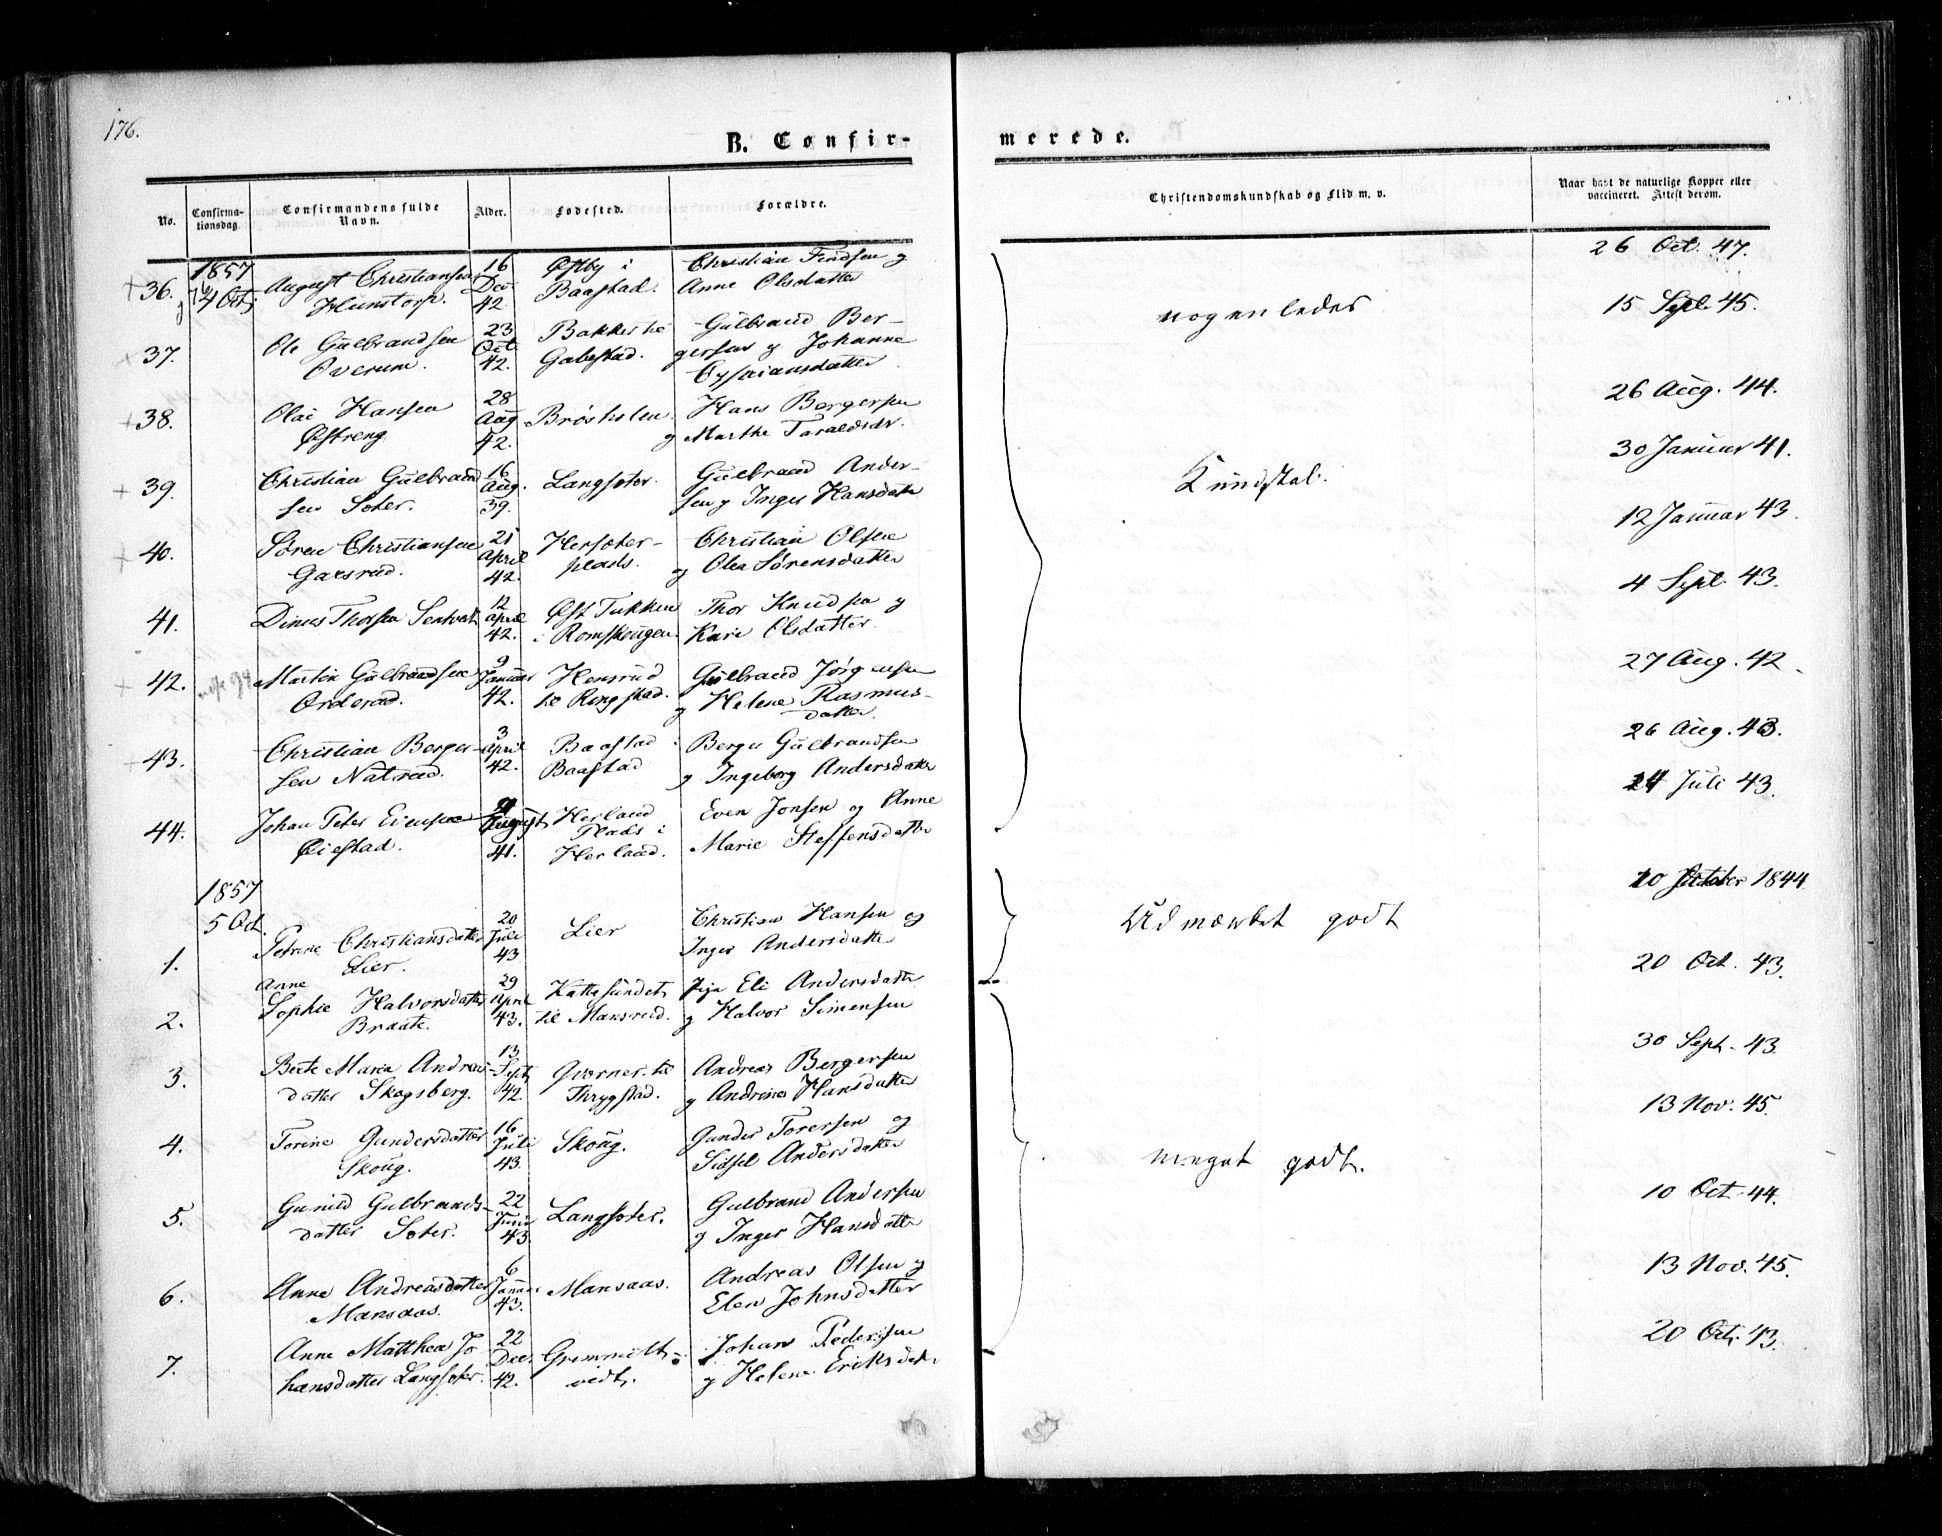 176.
B. Confir-
merede.
No.
Confirma-
tionsdag
Confirmandens fulde
Navn.
Alder.
Fødested.
Forældre.
Christendomskundskab og Flid m. v.
Naar havt de naturlige Kopper eller
vaccineret. Attest derom.
1857
4 Oct.
36. August Christiansen Hunstorp. 16 Dec 42 Østby i Baastad. Christian Findsen og Anne Olsdatter 26 Oct. 47.
37. Ole Gulbrandsen Overum. 23 Oct 42. Gabestad. Gulbrand Bergersen og Johanne 15 Sept. 45.
nogenledes
38. Olai Hansen Østreng 28 Aug 42. Brøsholen. Hans Bergersen og Marthe Taraldsdr. 26 Aug. 44.
39. Christian Gulbrandsen Soter. 16 Aug. 39. Langsoter. Gulbrand Andersen og Inger Hansdatter 30 Januar 41.
Kundskab:
40. Søren Christiansen Garsrud. 21 April 42. Hersoterplads. Christian Olsen og Olea Sørensdatter 12 Januar 43.
41. Dines Thorsen 12 April 42. Øst Tukken i Romskougen. Thor Knudsen og Kari Olsdatter. 4 Sept. 43.
42. Martin Gulbrandsen Orderud. 9 Januar 42. Hensrud til Ringstad. Gulbrand Jørgensen og Helene Rasmusdatter. 27 Aug. 42.
43. Christian Bergersen Natrud. 3 April 42. Baastad i Baastad Berger Gulbrandsen og Ingeborg Andersdatter 26 Aug. 43.
44. Johan Peter Evensen Øiestad. August 41. Herland Plads i Herland. Even Jonsen og Anne Marie Steffensdatter 24 Juli 43.
1857
5 Oct.
1. Petrine Christiansdatter Lier. 20 Juli 43 Lier Christian Hansen og Inger Andersdatter 10 October 1844.
Udmærket godt
2. Anne Sophie Halvorsdatter Braate. 29 April 43. Kattesundet til Mansrud. Pige Eli Andersdatter og Halvor Simensen 20 Oct. 43.
3. Berte Maria Andreasdatter Skogsberg. 13 Sept 42. Qværner til Thrygstad. Andreas Bergersen og Andrine Hansdatter 30 Sept. 43.
4. Torine Gundersdatter Skoug. 16 Juli 43. Skoug. Gunder Torersen og Sidsel Andersdatter 13 Nov. 45.
meget godt.
5. Gunild Gulbrandsdatter Soter. 22 Juni 43. Langsoter. Gulbrand Andersen og Inger Hansdatter 10 Oct. 44.
6. Anne Andreasdatter Mansaas. 6 Januar 43. Mansaas. Andreas Olsen og Elen Johnsdatter 13 Nov. 45.
7. Anne Matthea Johansdatter Langsoter. 22 Dec. 42. Johan Pedersen og Helene Eriksdatter 20 Oct. 43.